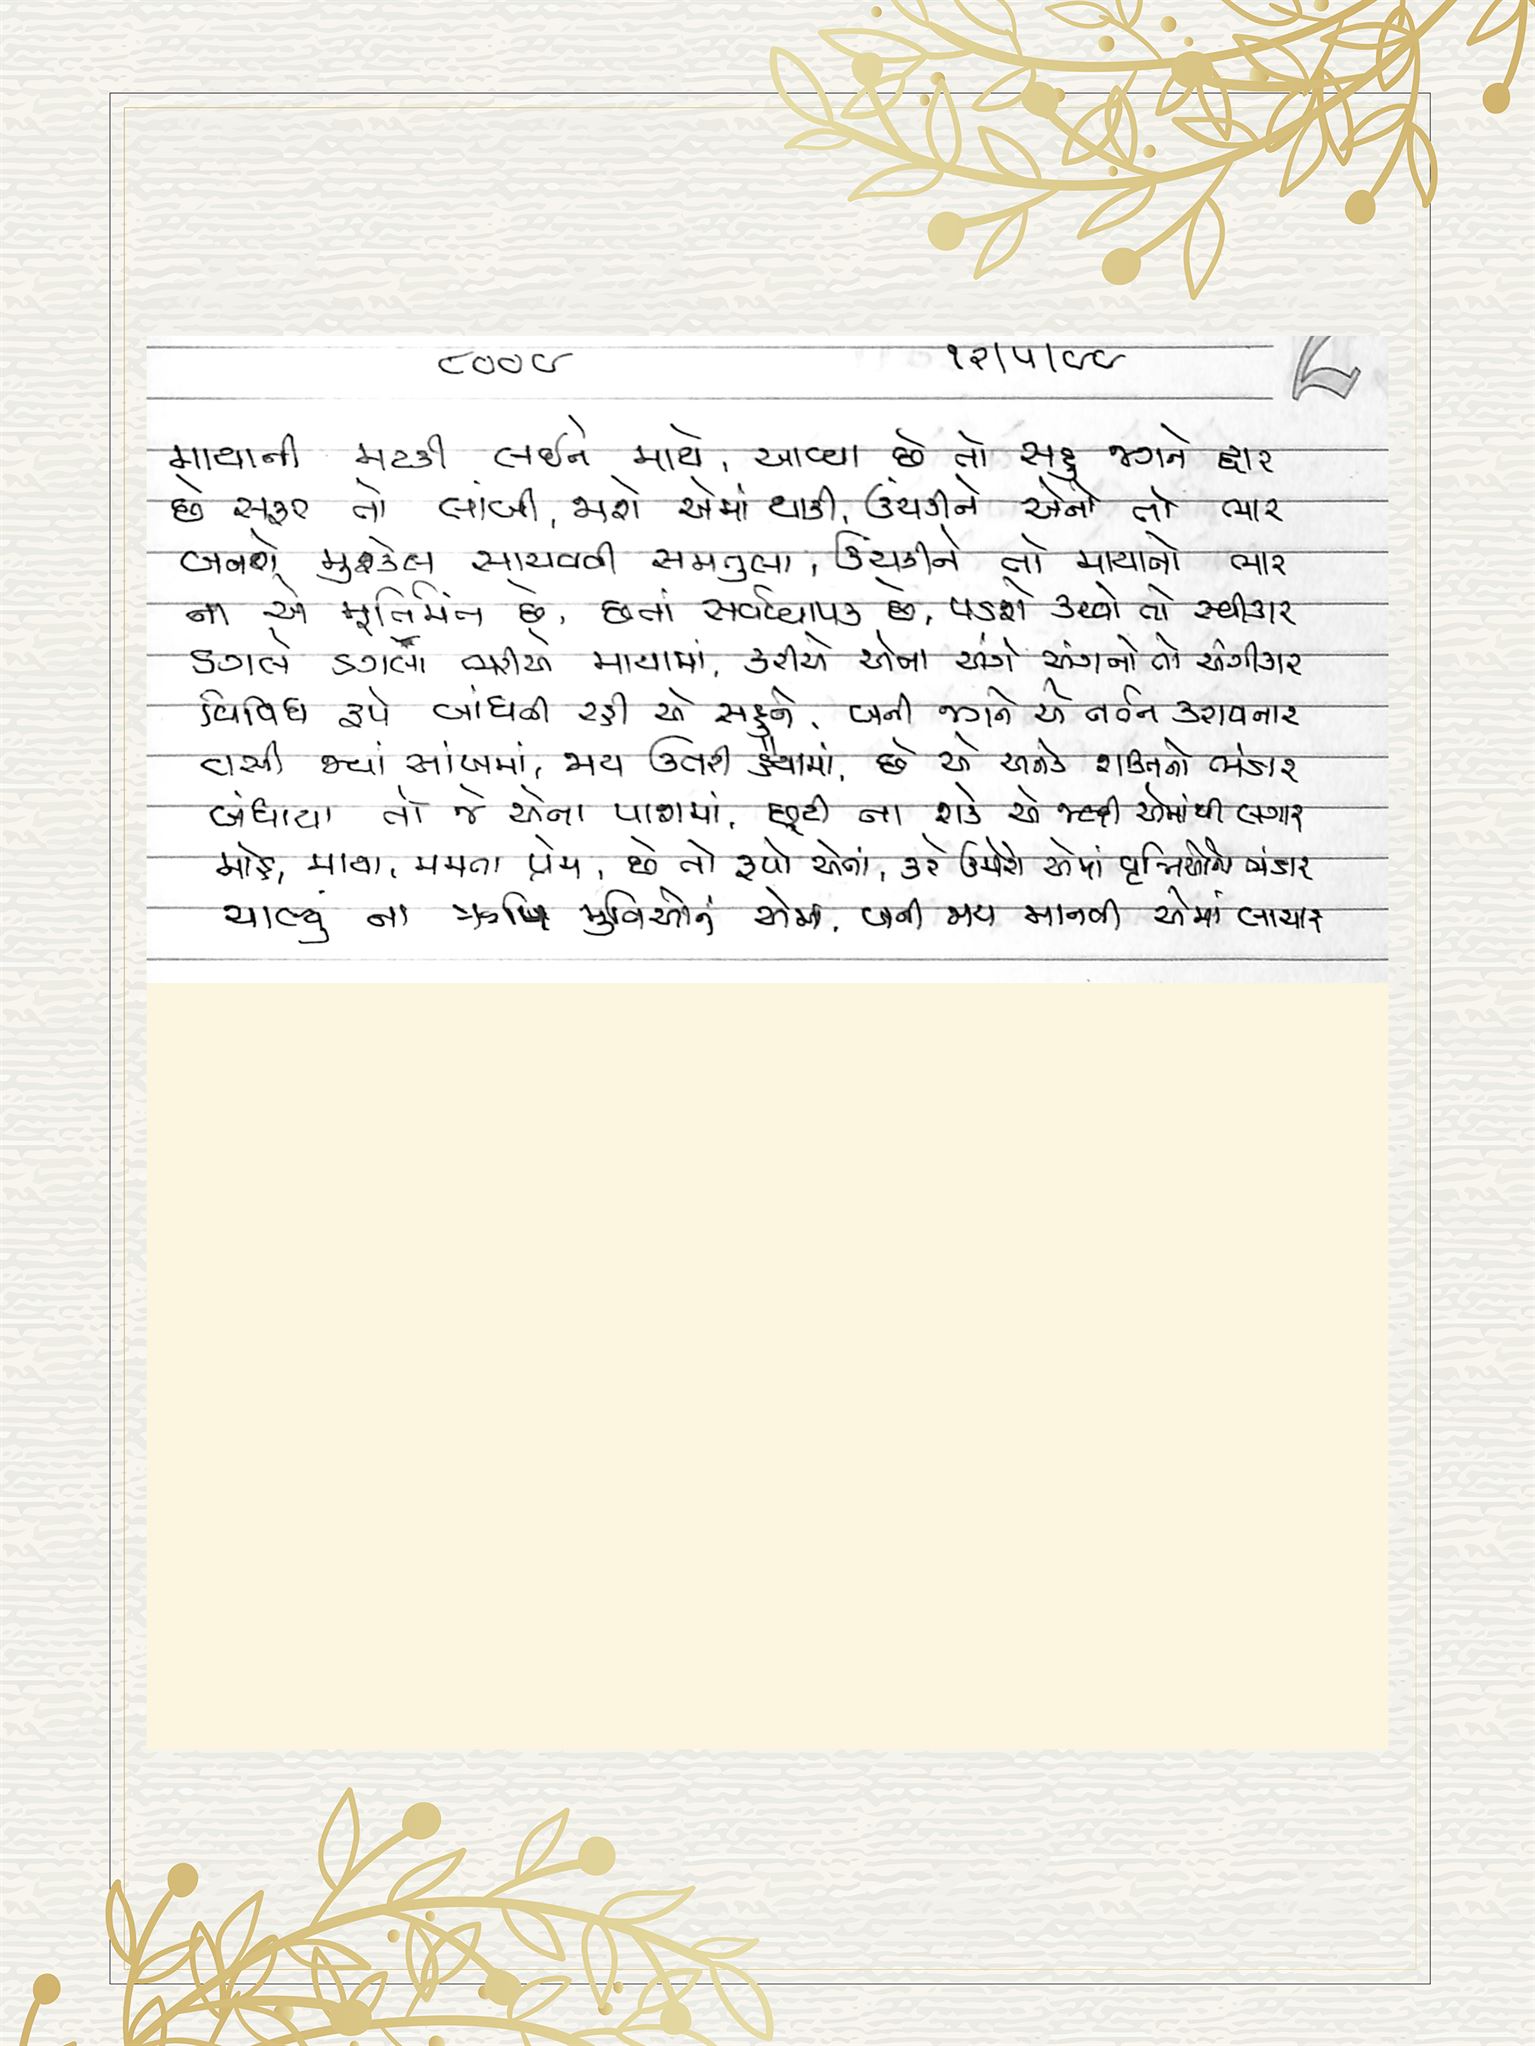 ૮૦૦૯ ૧૨/૫/૯૯
માયાની મટકી લઈને માથે, આવ્યા છે તો સહુ જગને દ્વાર
છે સફર તો લાંબી, જાશે એમાં થાકી, ઉંચકીને એનો તો ભાર
બનશે મુશ્કેલ સાચવવી સમતુલા, ઉંચકીને તો માયાનો ભાર
ના એ મૂર્તિમંત છે, છતાં સર્વવ્યાપક છે, પડશે કરવો તો સ્વીકાર
ડગલે ડગલાં ભરીએ માયામાં, કરીએ એના અંગે અંગનો તો અંગીકાર
વિવિધ રૂપે બાંધતી રહી એ સહુને, બની જગને એ નર્તન કરાવનાર
વસી જ્યાં આંખમાં, જાય ઉતરી હૈયામાં, છે એ અનેક શક્તિનો ભંડાર
બંધાયા તો જે એના પાશમાં, છૂટી ના શકે એ જલ્દી એમાંથી લગાર
મોહ, માયા, મમતા પ્રેમ, છે તો રૂપો એનાં, કરે ઉમેરો એમાં વૃત્તિઓનો ભંડાર
ચાલ્યું ના ઋષિ મુનિઓનું એમાં, બની જાય માનવી એમાં લાચાર